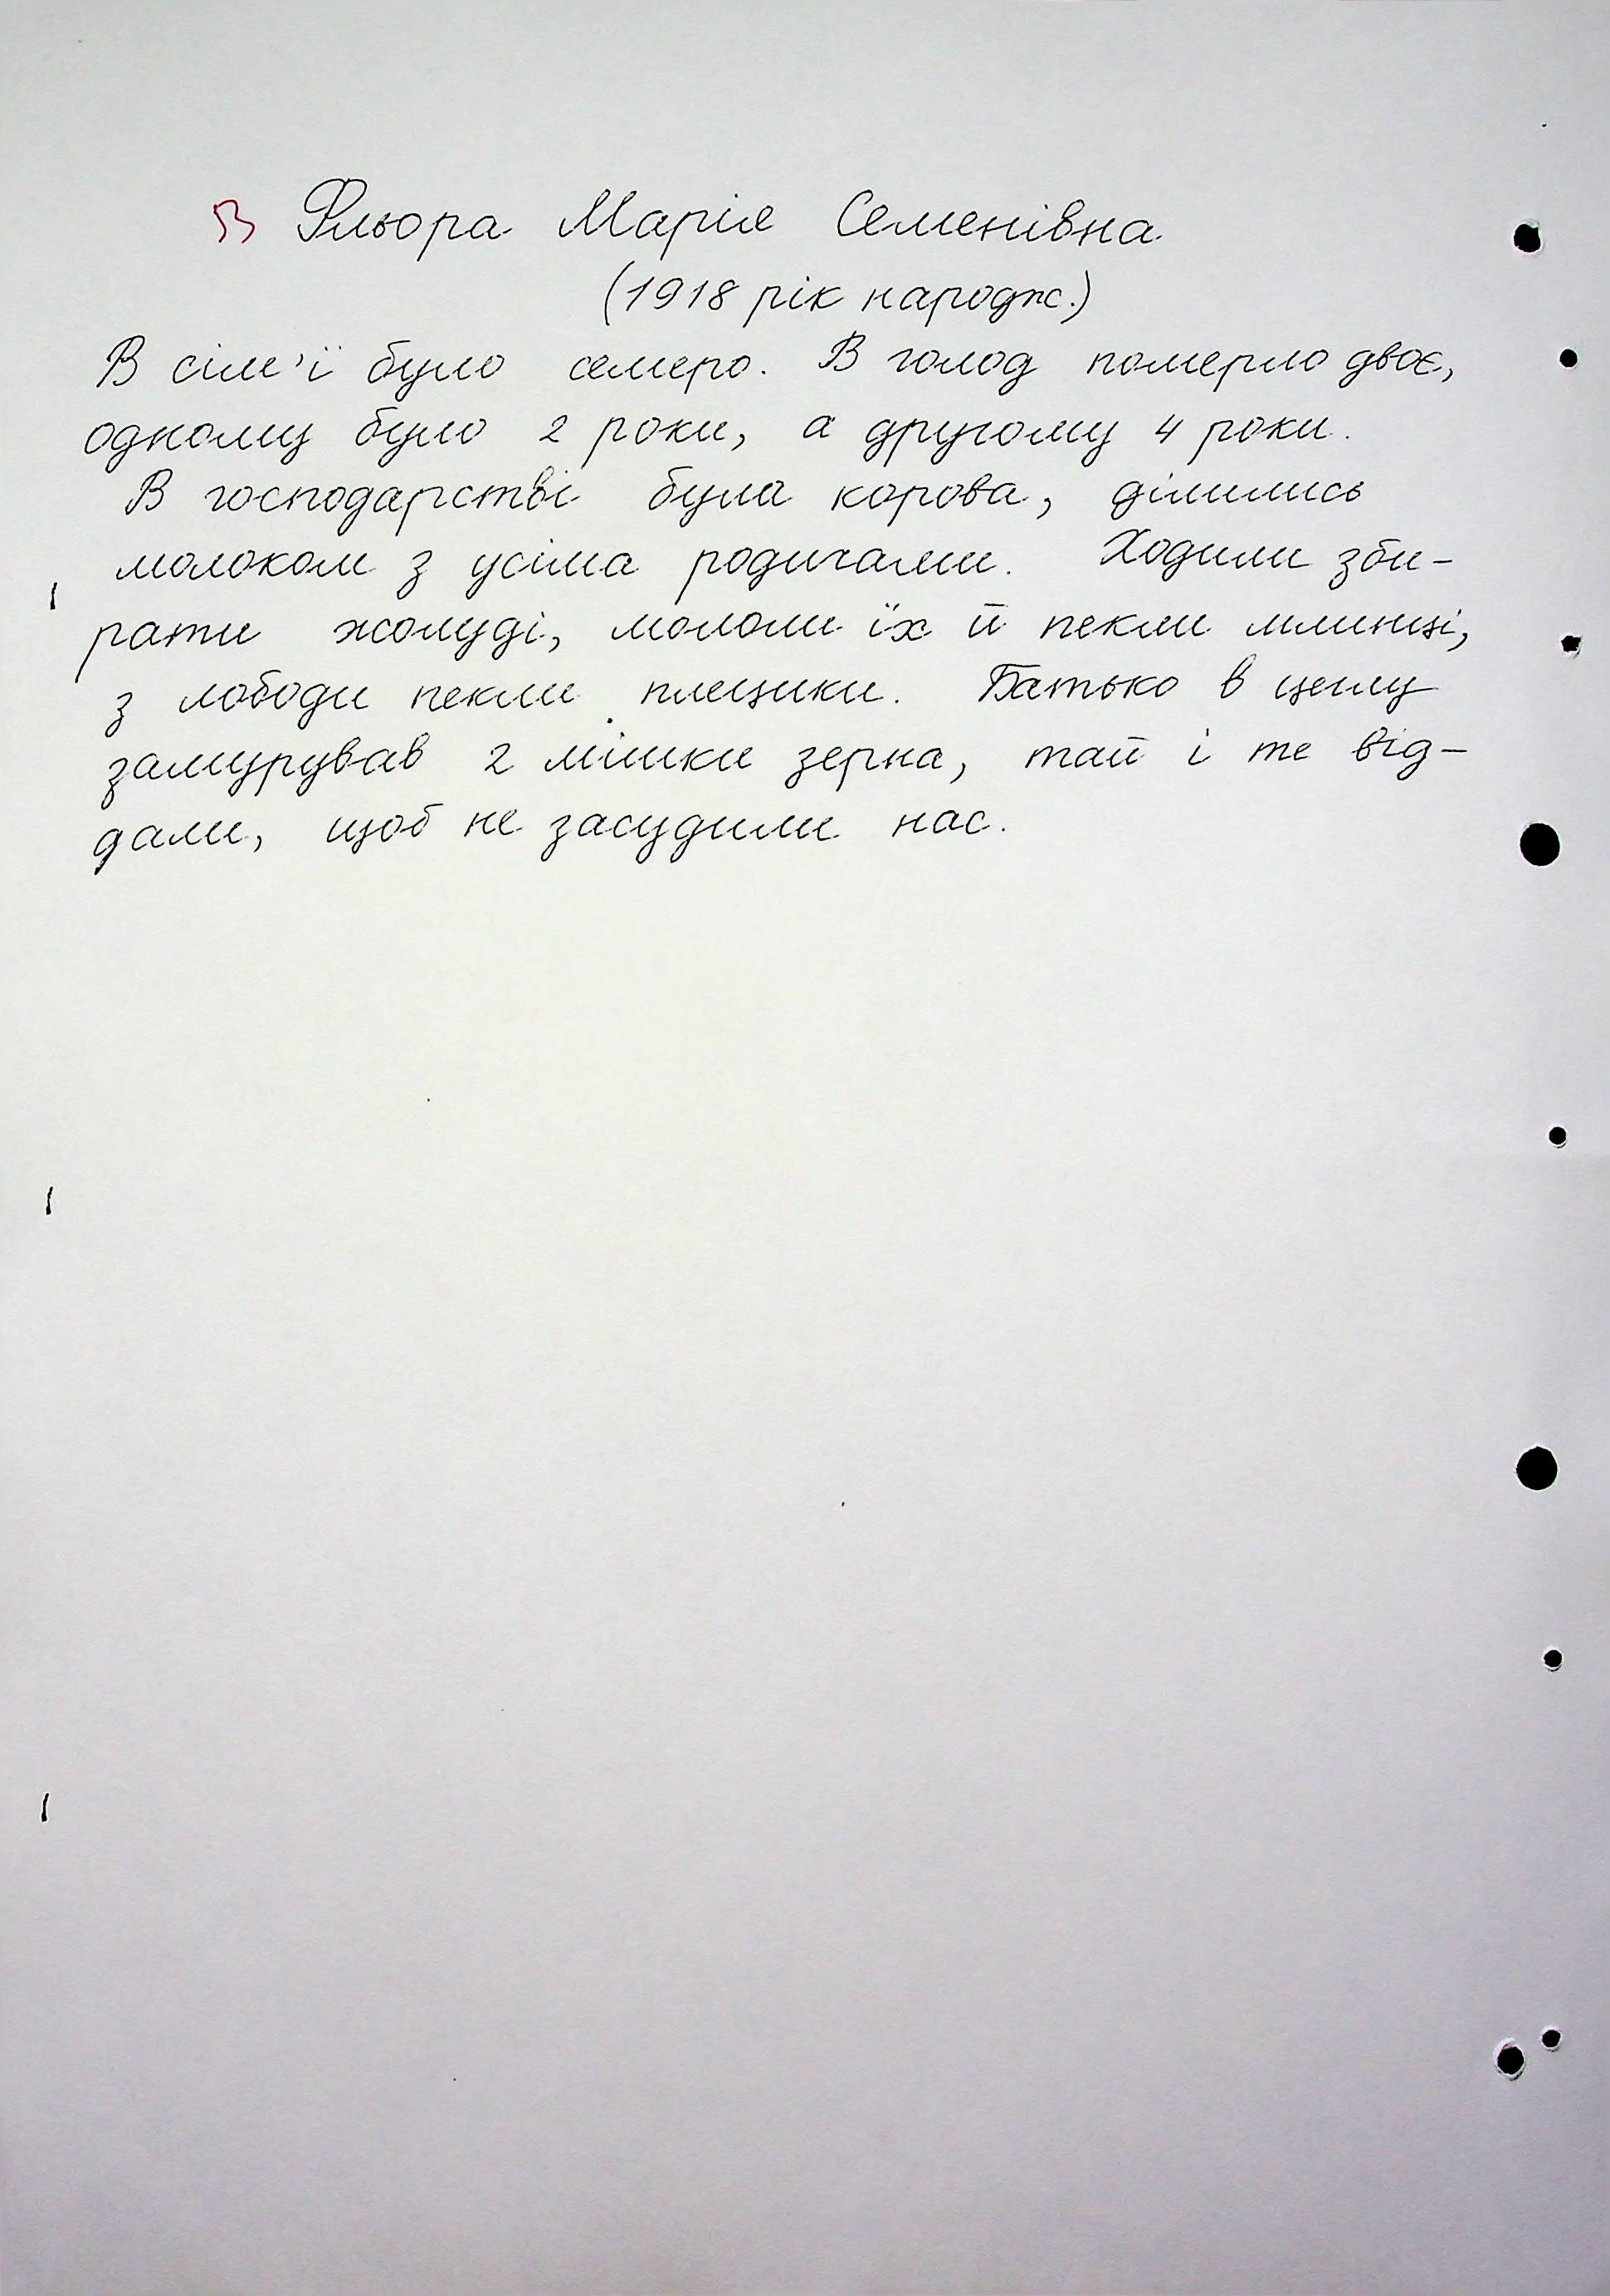 В Фльора Марія Семенівна
(1918 рік народж.)
В сім'ї було семеро. В голод померло двоє,
одному було 2 роки, а другому 4 роки.
В господарстві була корова, ділились
молоком з усіма родичами. Ходили зби-
рати жолуді, мололи їх й пекли млинці,
з лободи пекли плещики. Батько в цеглу
замурував 2 мішки зерна, тай і те від-
дали, щоб не засудили нас.